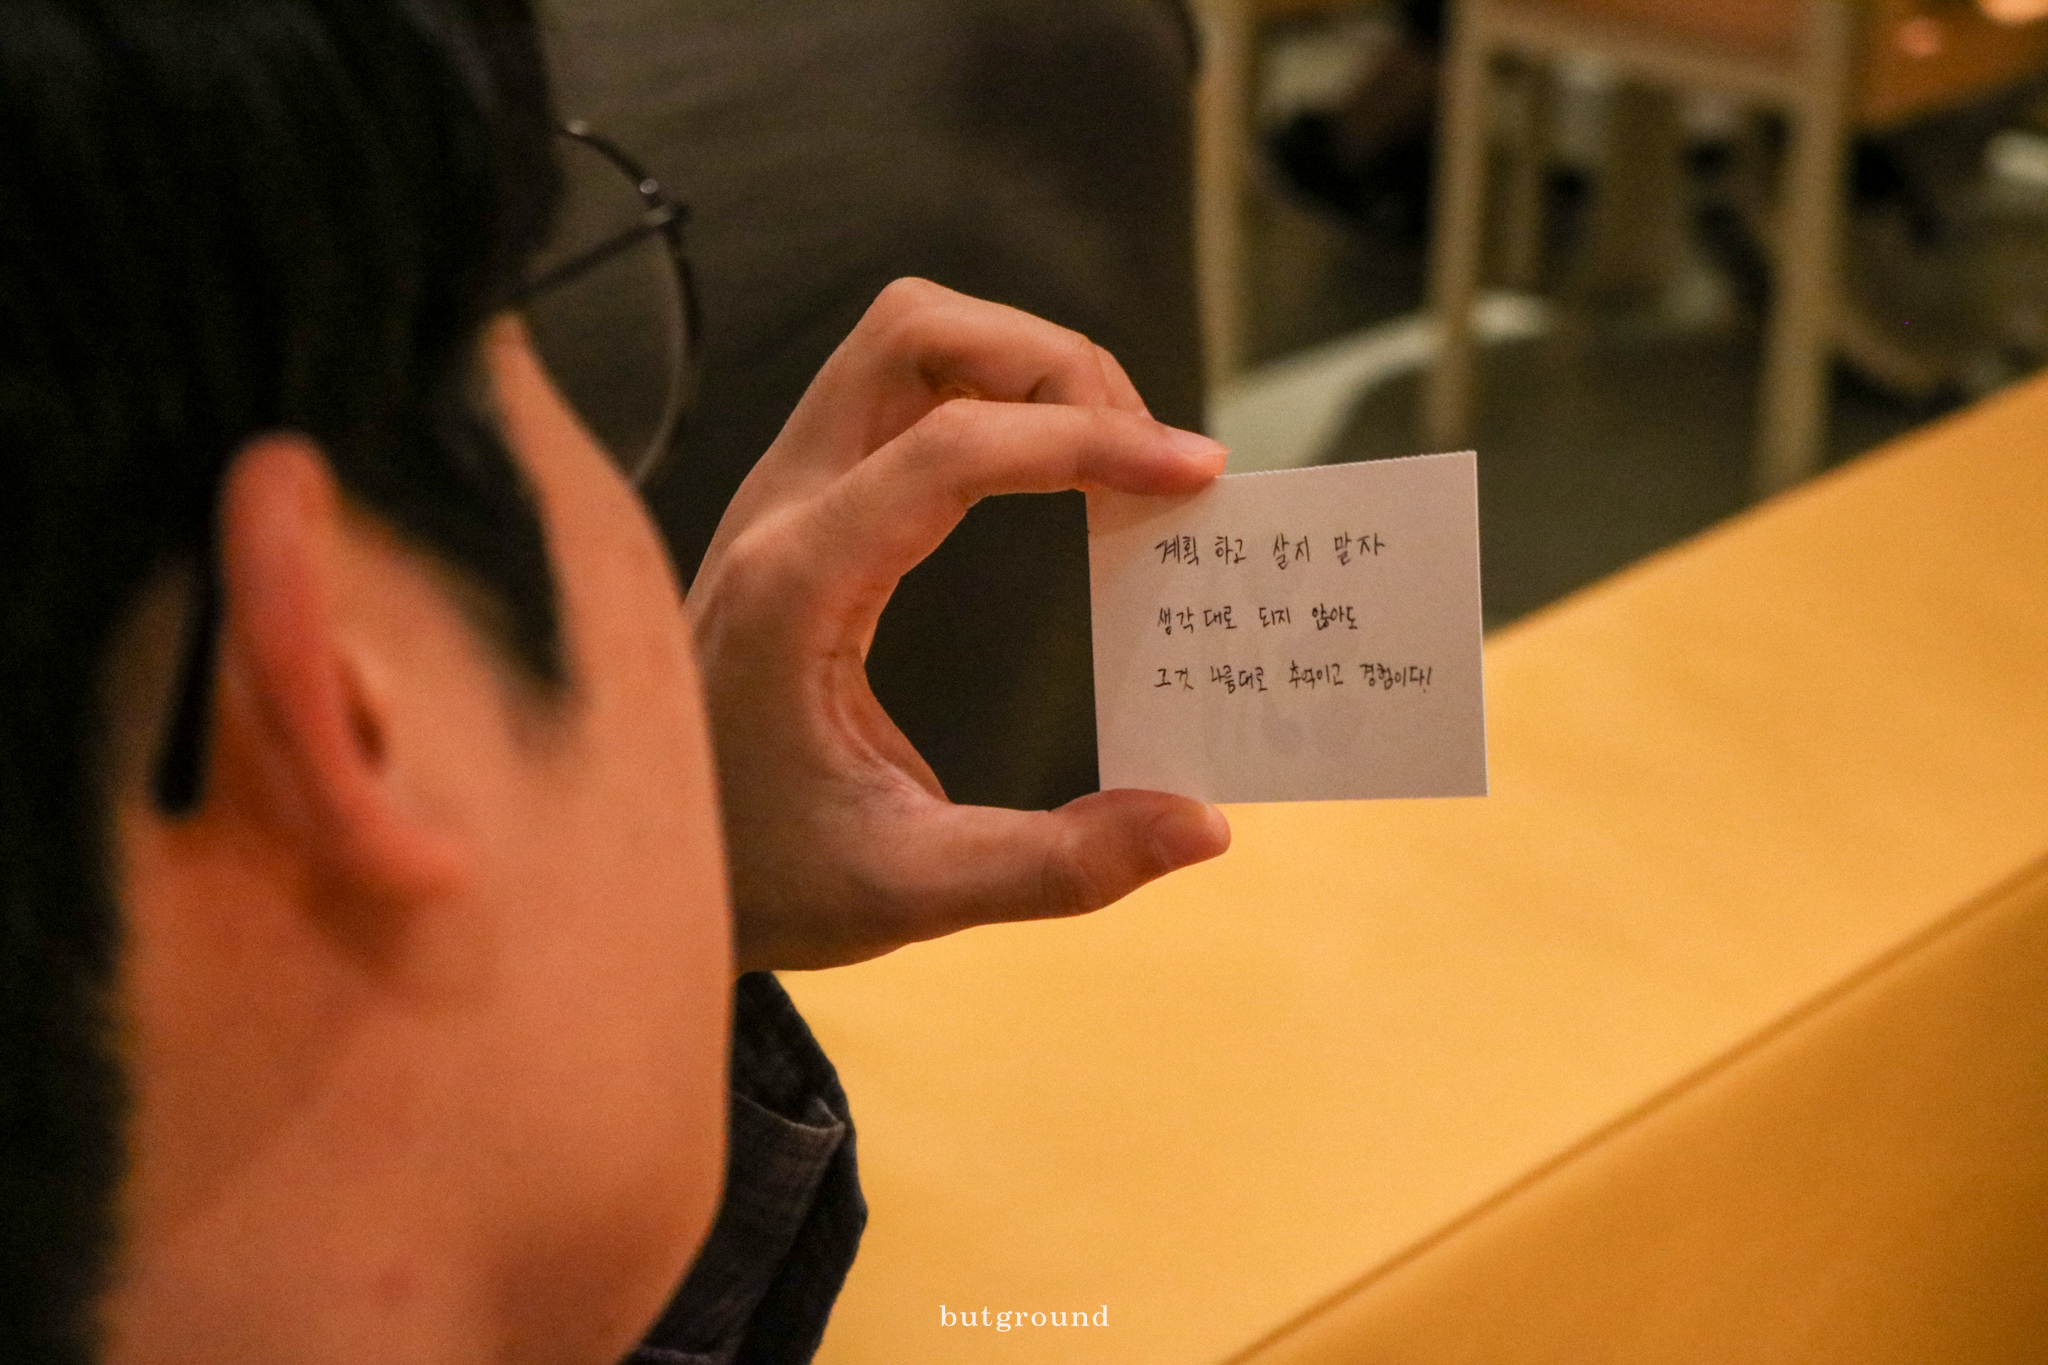 계획 하고 살지 말자
생각 대로 되지 않아도
그것 나름대로 추억이고 경험이다!
butground